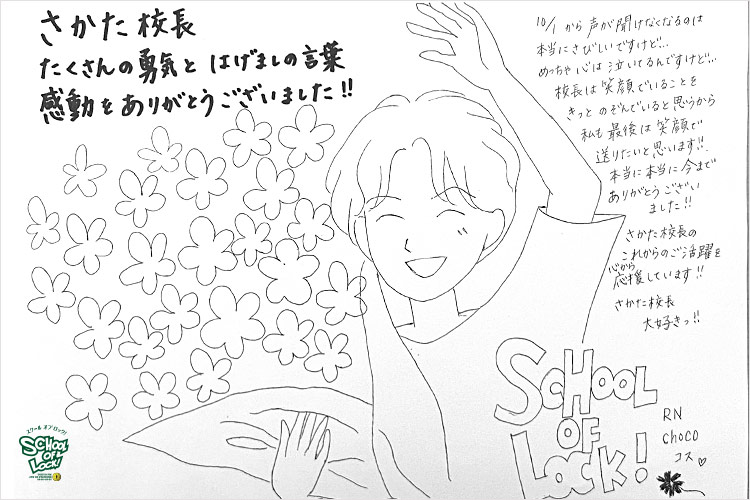 さかた校長
たくさんの勇気と はげましの言葉
感動をありがとうございました!!
10/1 から声が聞けなくなるのは
本当にさびしいですけど…
めっちゃ心は泣いてるんですけど…
校長は笑顔でいることを
きっと のぞんでいると思うから
私も最後は笑顔で
送りたいと思います!!
本当に本当に今まで
ありがとうござい
ました!!
さかた校長の
これからのご活躍を
心から
応援しています!!
さかた校長
大好きっ!!
SCHOOL
OF
LOCK!
RN
choco
コス
スクール オブ ロック!
SCHOOL
OF
LOCK!